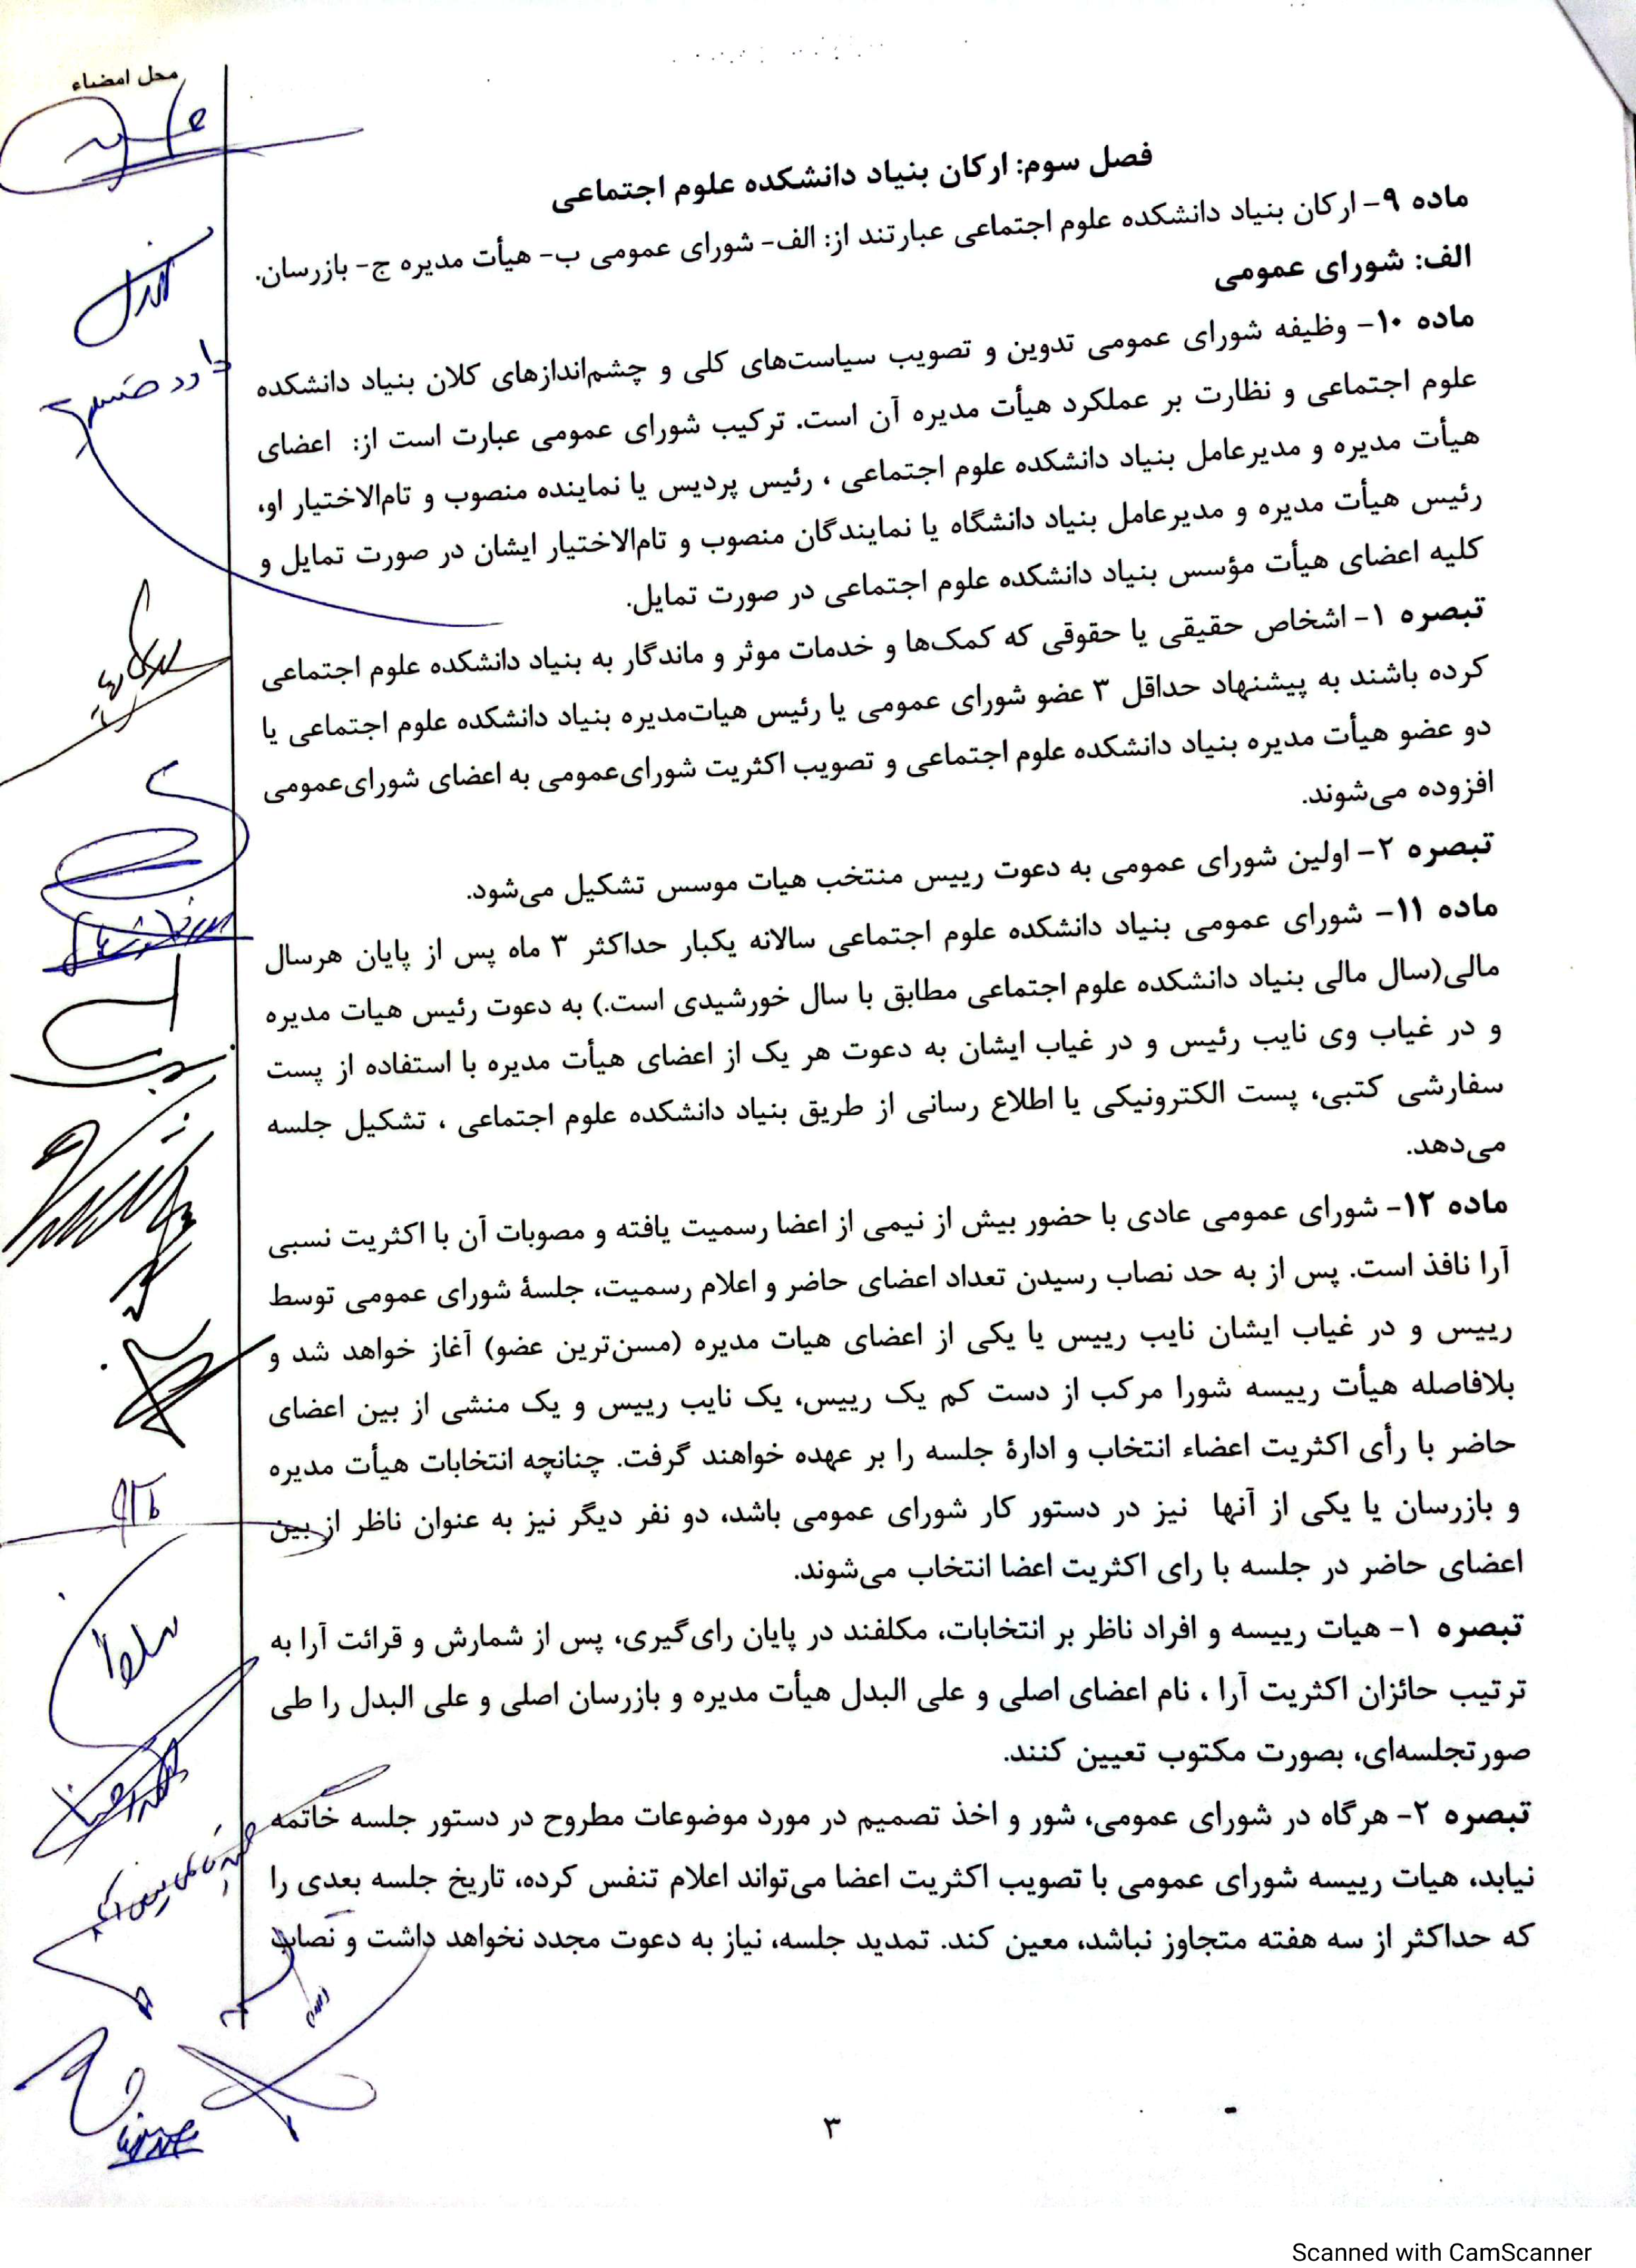 محل امضاء
فصل سوم: ارکان بنیاد دانشکده علوم اجتماعی
ماده ۹- ارکان بنیاد دانشکده علوم اجتماعی عبارتند از: الف- شورای عمومی ب- هیأت مدیره ج- بازرسان.
الف: شورای عمومی
ماده ۱۰- وظیفه شورای عمومی تدوین و تصویب سیاست‌های کلی و چشم‌اندازهای کلان بنیاد دانشکده
علوم اجتماعی و نظارت بر عملکرد هیأت مدیره آن است. ترکیب شورای عمومی عبارت است از: اعضای
هیأت مدیره و مدیرعامل بنیاد دانشکده علوم اجتماعی ، رئیس پردیس یا نماینده منصوب و تام‌الاختیار او،
رئیس هیأت مدیره و مدیرعامل بنیاد دانشگاه یا نمایندگان منصوب و تام‌الاختیار ایشان در صورت تمایل و
کلیه اعضای هیأت مؤسس بنیاد دانشکده علوم اجتماعی در صورت تمایل.
تبصره ۱- اشخاص حقیقی یا حقوقی که کمک‌ها و خدمات موثر و ماندگار به بنیاد دانشکده علوم اجتماعی
کرده باشند به پیشنهاد حداقل ۳ عضو شورای عمومی یا رئیس هیات‌مدیره بنیاد دانشکده علوم اجتماعی یا
دو عضو هیأت مدیره بنیاد دانشکده علوم اجتماعی و تصویب اکثریت شورای‌عمومی به اعضای شورای‌عمومی
افزوده می‌شوند.
تبصره ۲- اولین شورای عمومی به دعوت رییس منتخب هیات موسس تشکیل می‌شود.
ماده ۱۱- شورای عمومی بنیاد دانشکده علوم اجتماعی سالانه یکبار حداکثر ۳ ماه پس از پایان هرسال
مالی(سال مالی بنیاد دانشکده علوم اجتماعی مطابق با سال خورشیدی است.) به دعوت رئیس هیات مدیره
و در غیاب وی نایب رئیس و در غیاب ایشان به دعوت هر یک از اعضای هیأت مدیره با استفاده از پست
سفارشی کتبی، پست الکترونیکی یا اطلاع رسانی از طریق بنیاد دانشکده علوم اجتماعی ، تشکیل جلسه
می‌دهد.
ماده ۱۲- شورای عمومی عادی با حضور بیش از نیمی از اعضا رسمیت یافته و مصوبات آن با اکثریت نسبی
آرا نافذ است. پس از به حد نصاب رسیدن تعداد اعضای حاضر و اعلام رسمیت، جلسۀ شورای عمومی توسط
رییس و در غیاب ایشان نایب رییس یا یکی از اعضای هیات مدیره (مسن‌ترین عضو) آغاز خواهد شد و
بلافاصله هیأت رییسه شورا مرکب از دست کم یک رییس، یک نایب رییس و یک منشی از بین اعضای
حاضر با رأی اکثریت اعضاء انتخاب و ادارۀ جلسه را بر عهده خواهند گرفت. چنانچه انتخابات هیأت مدیره
و بازرسان یا یکی از آنها نیز در دستور کار شورای عمومی باشد، دو نفر دیگر نیز به عنوان ناظر از بین
اعضای حاضر در جلسه با رای اکثریت اعضا انتخاب می‌شوند.
تبصره ۱- هیات رییسه و افراد ناظر بر انتخابات، مکلفند در پایان رای‌گیری، پس از شمارش و قرائت آرا به
ترتیب حائزان اکثریت آرا ، نام اعضای اصلی و علی البدل هیأت مدیره و بازرسان اصلی و علی البدل را طی
صورتجلسه‌ای، بصورت مکتوب تعیین کنند.
تبصره ۲- هرگاه در شورای عمومی، شور و اخذ تصمیم در مورد موضوعات مطروح در دستور جلسه خاتمه
نیابد، هیات رییسه شورای عمومی با تصویب اکثریت اعضا می‌تواند اعلام تنفس کرده، تاریخ جلسه بعدی را
که حداکثر از سه هفته متجاوز نباشد، معین کند. تمدید جلسه، نیاز به دعوت مجدد نخواهد داشت و نصاب
۳
Scanned with CamScanner